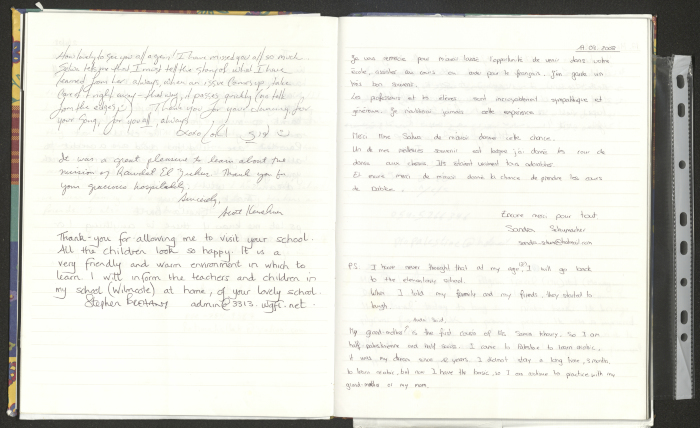 How lovely to see you all again! I have missed you all so much.
Salwa told me that I must tell the story of what I have
learned from her: always, when an issue comes up, take
care of it right away - that way, it passes quickly (no talk
from the edges) ;) Thank you for your charming, for
your song, for you all, always
xoxo
It was a great pleasure to learn about the
mission of Rawdat El Zuhur. Thank you for
your gracious hospitality.
Sincerely,
Thank-you for allowing me to visit your school.
All the children look so happy. It is a
very friendly and warm environment in which to
learn. I will inform the teachers and children in
my school (Wilmcote) at home, of your lovely school.
Stephen admin@3313.
2008
Je vous remercie pour m'avoir laissé l'opportunité de venir dans votre
école, assister aux cours ou pour le français. J'en garde un
très bon souvenir.
Les professeurs et les élèves sont incroyablement sympathiques et
généreux. Je n'oublierai jamais cette expérience.
Merci Mme Salwa de m'avoir donné cette chance.
Un de mes meilleurs souvenir est lorsque j'ai donné les cour de
danse aux Ils étaient vraiment tous adorables.
Et encore merci de m'avoir donné la chance de prendre les cours
de Dabkeh.
Encore merci pour tout
Sandra Schumacher
P.S. I have never thought that at my age, I will go back
to the elementary school.
When I told my family and my friends, they started to
laugh.
My grand-mother is the first cousin of Ms. Samia Khoury, so I am
half palestinian and half swiss. I came to Palestine to learn arabic,
it was my dream since years. I did not stay a long time, 3 months
to learn arabic, but now I have the basic, so I can continue to practice with my
grand-mother or my mom.